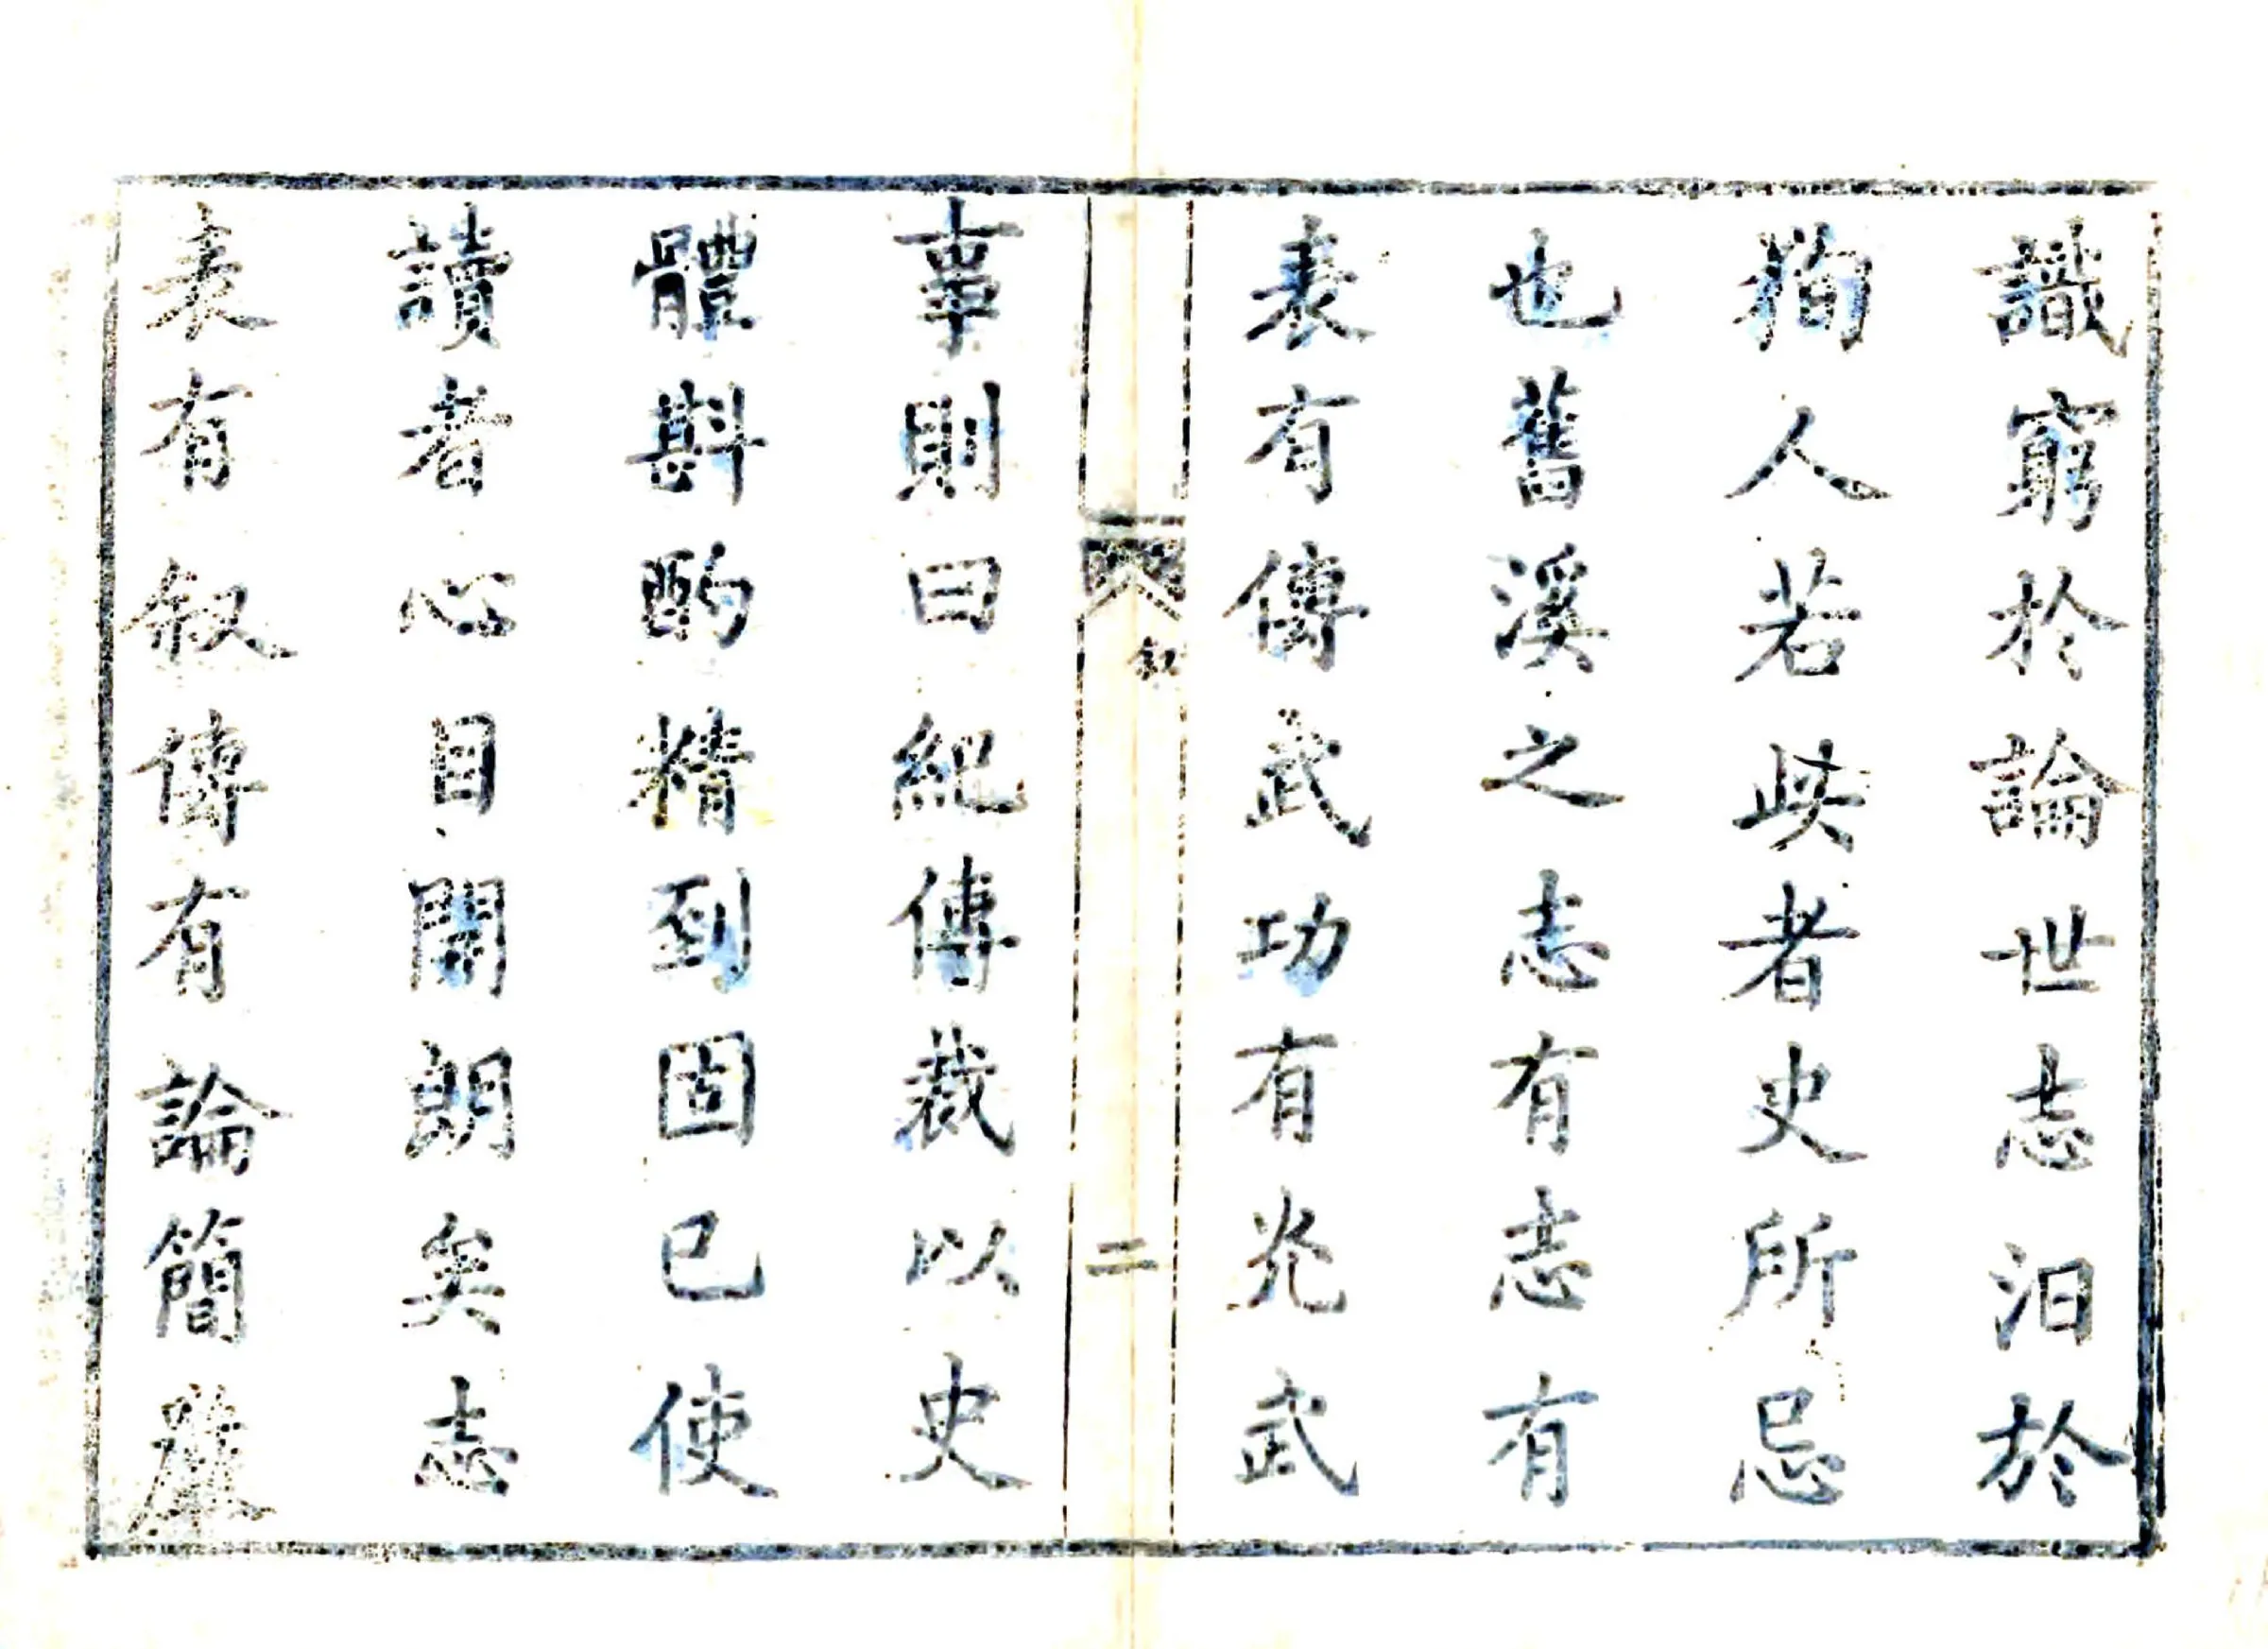 識窮於論世志汩於
狥人若此者史所忌
也舊溪之志有志有
表有傳武功有光武
敘
二
事則曰紀傳裁以史
體斟酌精到固已使
讀者心目開朗矣志
表有叙傳有論簡嚴